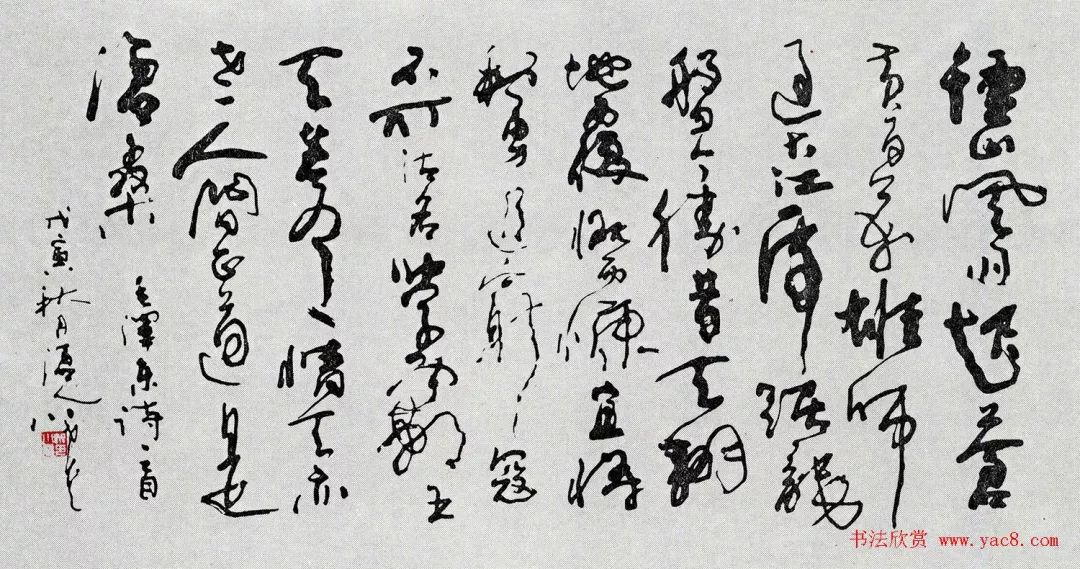 鍾山風雨起蒼
黄百万雄师
過大江虎踞龍
盤今勝昔天翻
地覆慨而慷宜将
剩勇追窮寇
不可沽名學霸王
天若有情天亦
老人間正道是
滄桑
毛澤东詩一首
戊寅秋月
书法欣赏 www.yac8.com